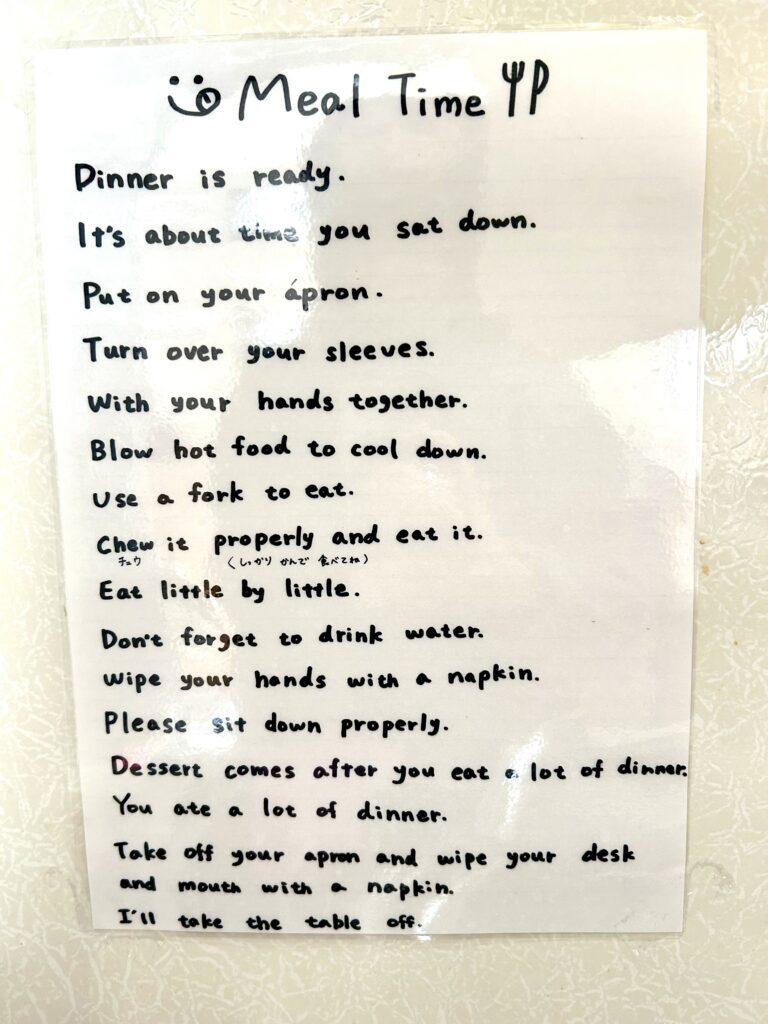 Meal Time
Dinner is ready.
It's about time you sat down.
Put on your ápron.
Turn over your sleeves.
With your hands together.
Blow hot food to cool down.
Use a fork to eat.
Chew it properly and eat it.
チュウ (しっかり かんで 食べてね)
Eat little by little.
Don't forget to drink water.
Wipe your hands with a napkin.
Please sit down properly.
Dessert comes after you eat a lot of dinner.
You ate a lot of dinner.
Take off your apron and wipe your desk
and mouth with a napkin.
I'll take the table off.